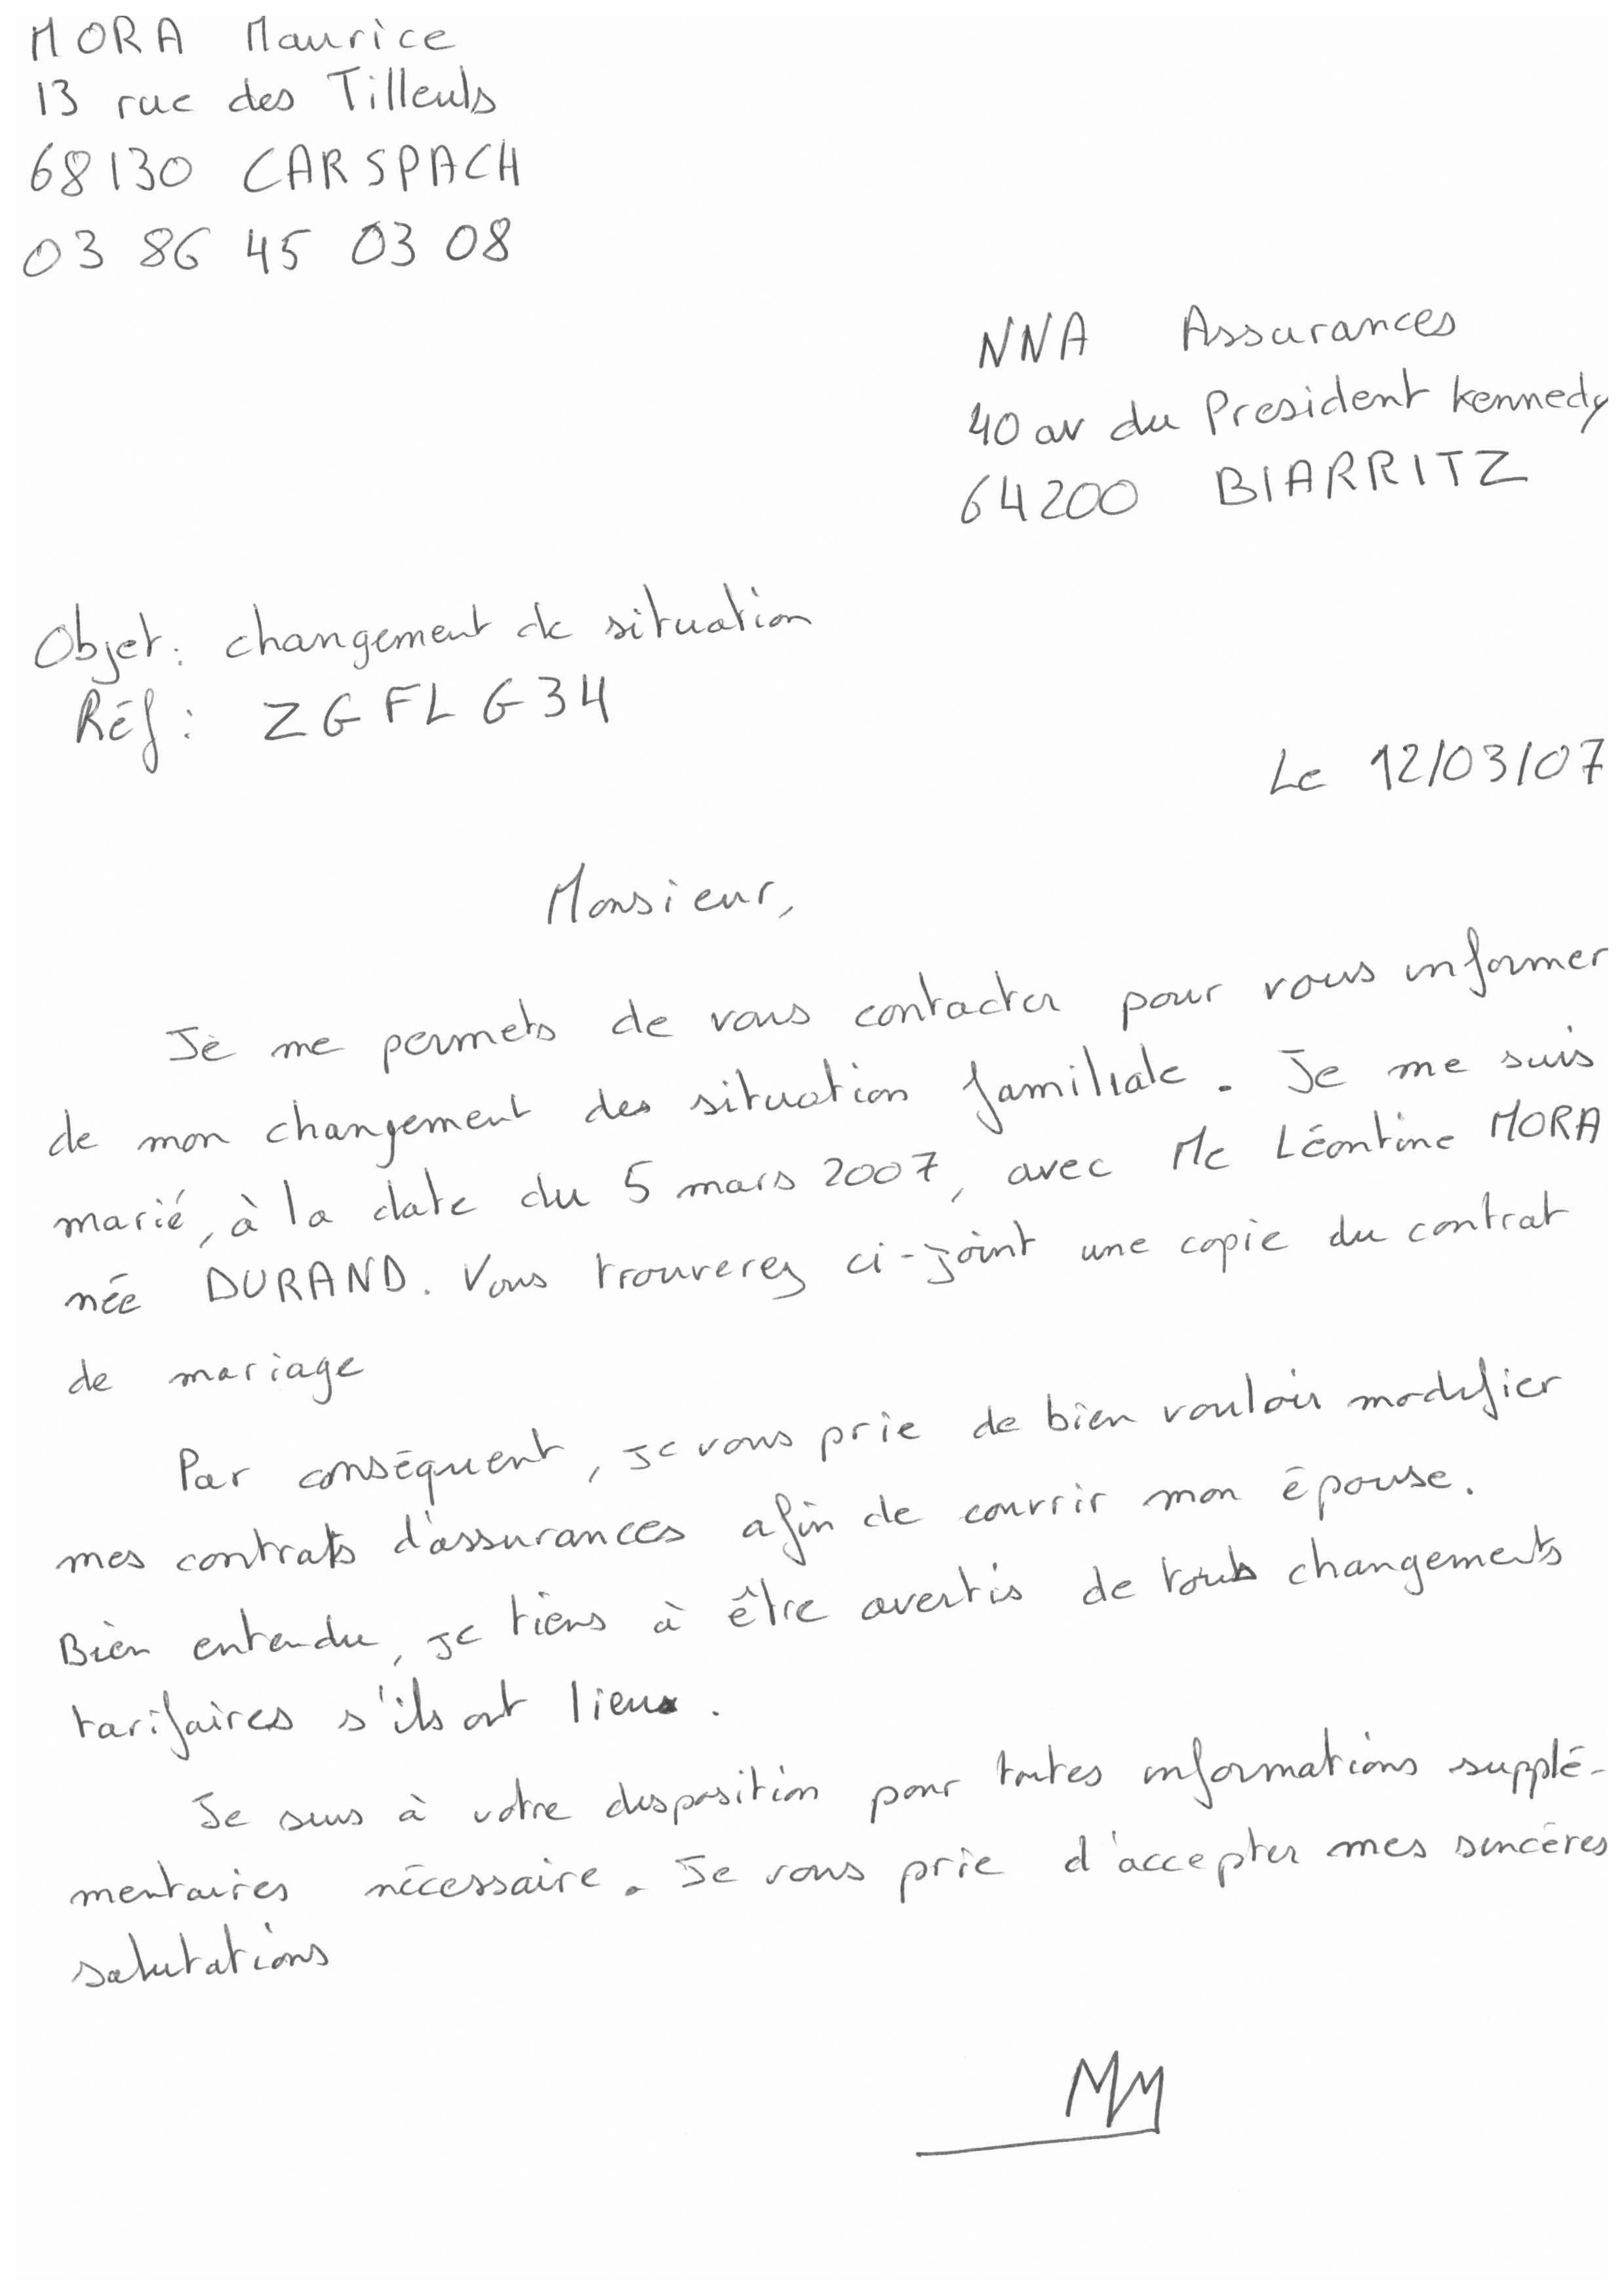 MORA Maurice
13 rue des Tilleuls
68130 CARSPACH
03 86 45 03 08
NNA Assurances
40 av du President Kennedy
64200 BIARRITZ
Objet : changement de situation
Réf : ZGFLG34
Le 12/03/07
Monsieur,
Je me permets de vous contacter pour vous informer
de mon changement des situation familiale. Je me suis
marié, à la date du 5 mars 2007, avec Me Léontine MORA
née DURAND. Vous trouverez ci-joint une copie du contrat
de mariage
Par conséquent, je vous prie de bien vouloir modifier
mes contrats d'assurances afin de couvrir mon épouse.
Bien entendu, je tiens à être avertis de touts changements
tarifaires s'ils ont lieu.
Je suis à votre disposition pour toutes informations supplé-
mentaires nécessaire. Je vous prie d'accepter mes sincères
salutations
MM